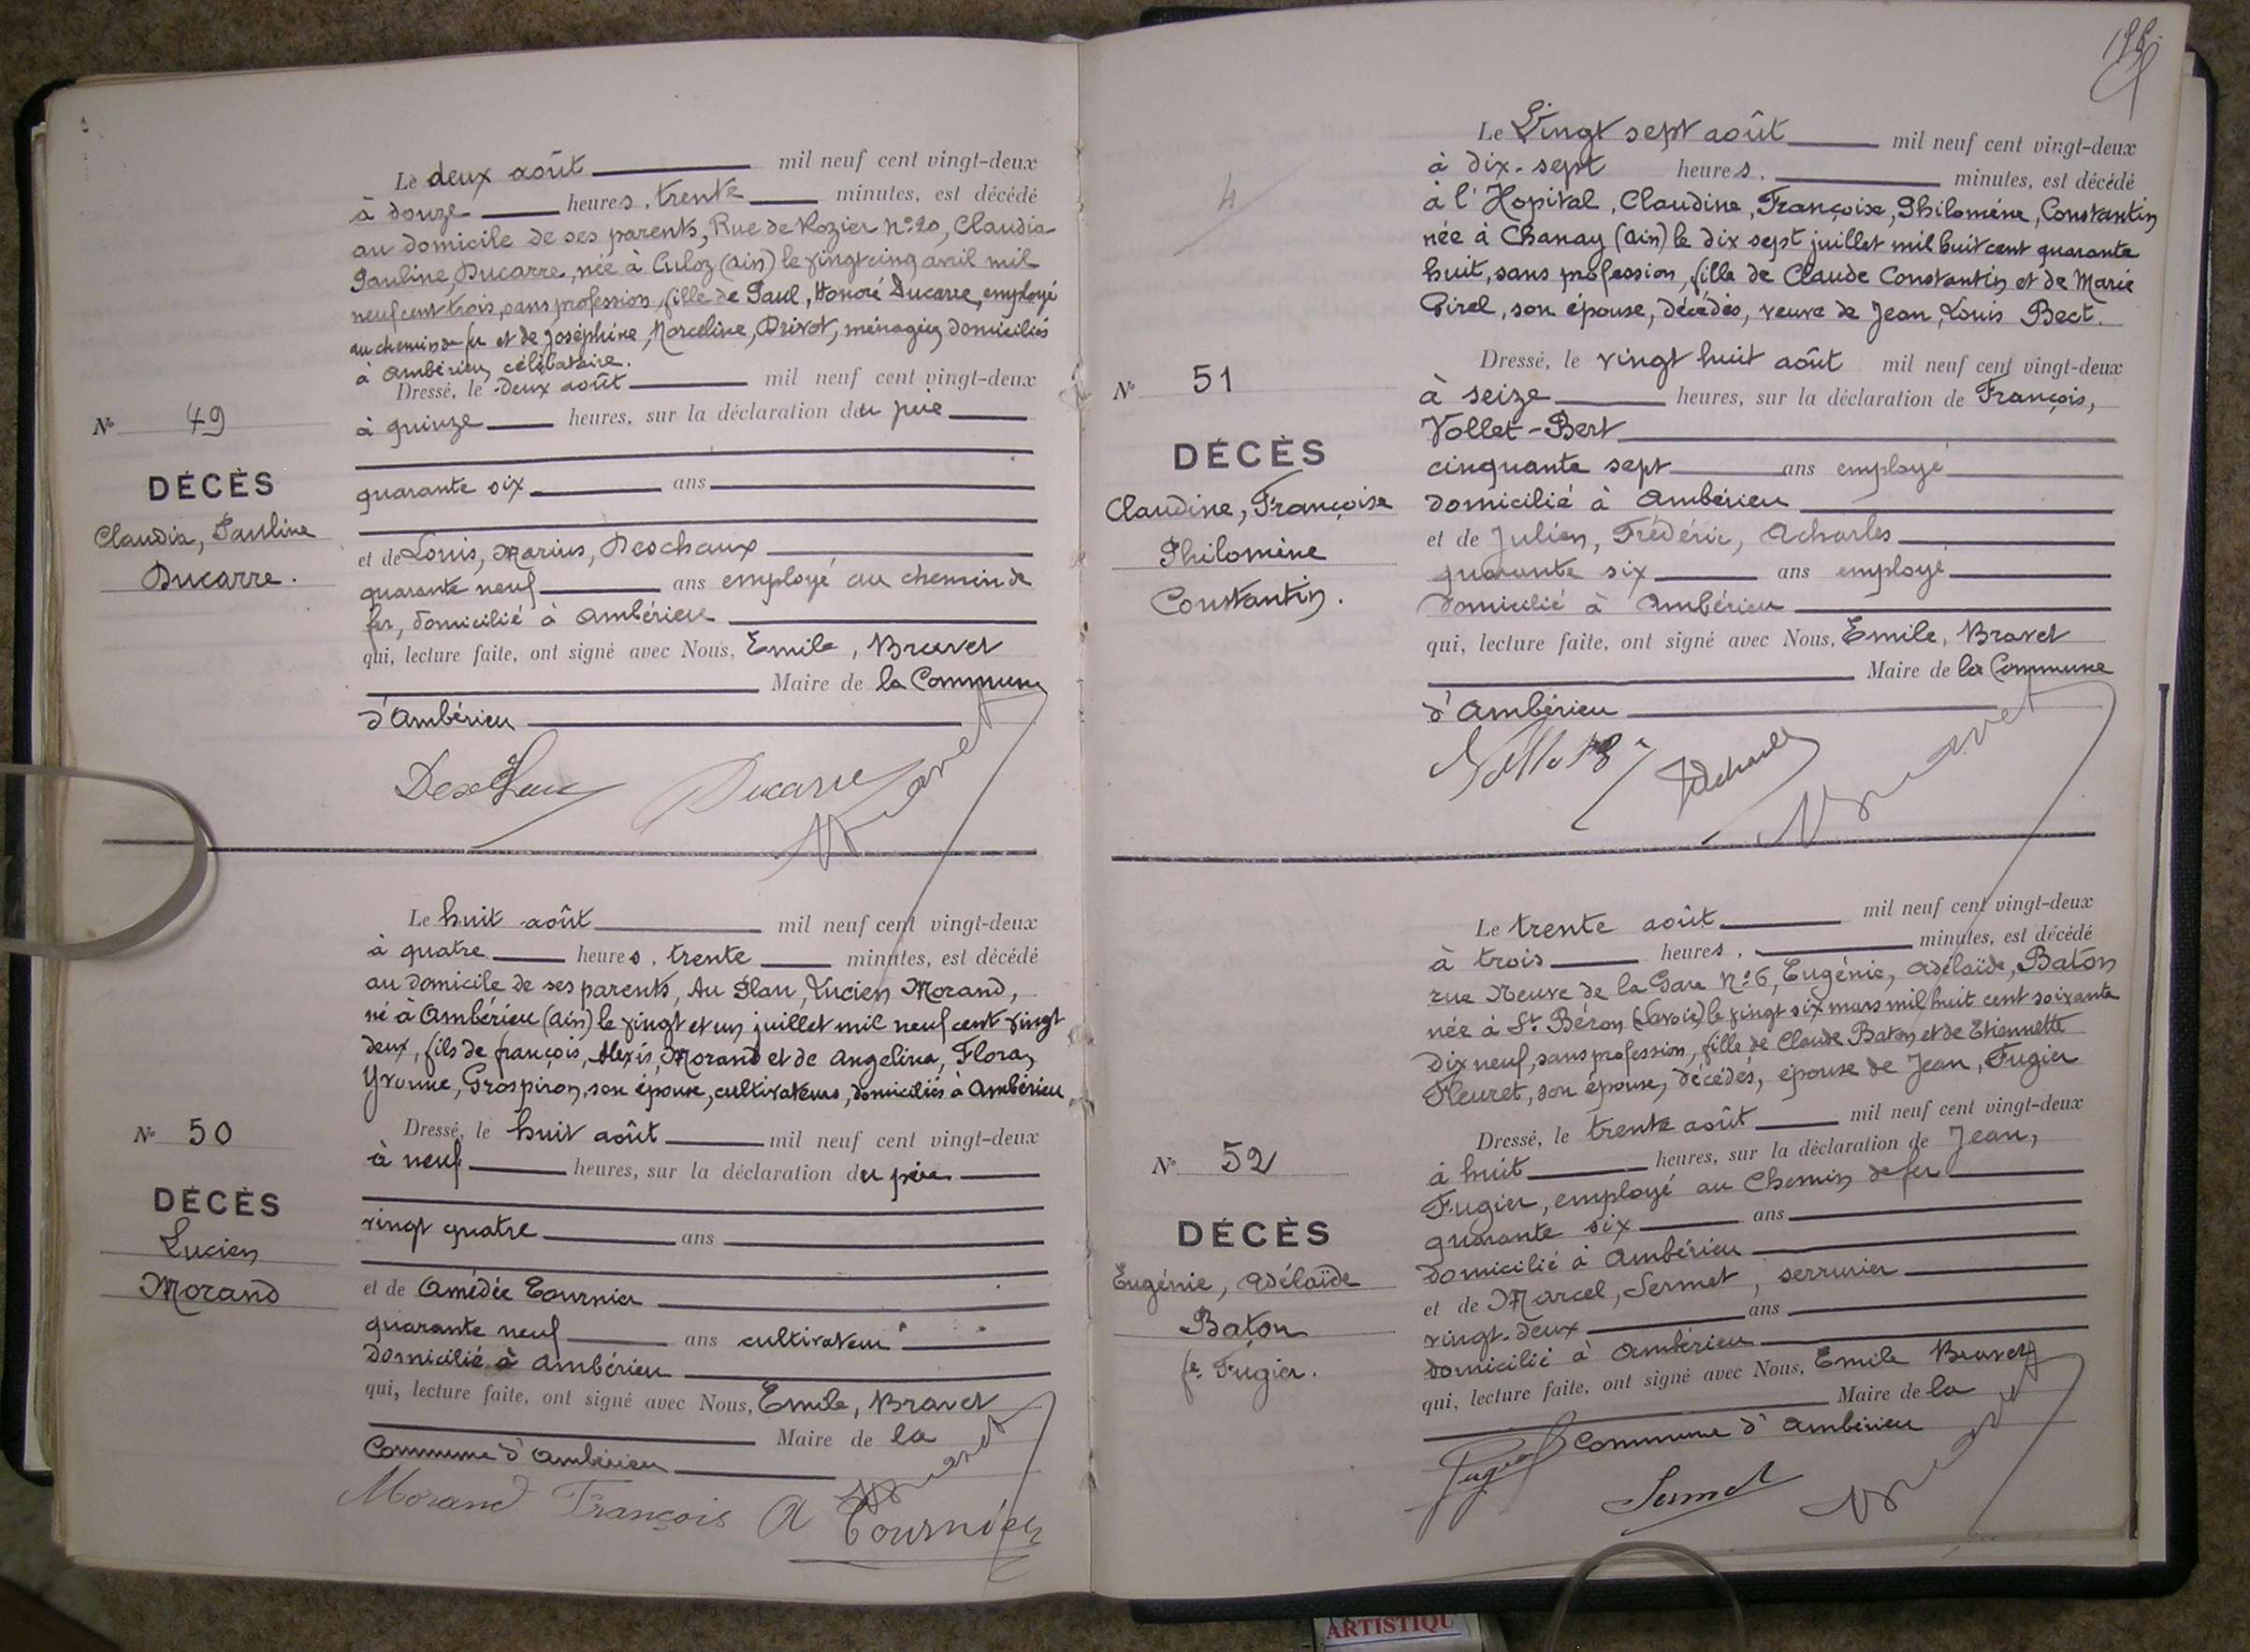 Le deux août mil neuf cent vingt-deux
à douze heures, trente minutes, est décédé
au domicile de ses parents, Rue de Rozier N°20, Claudia
Pauline, Ducarre, née à Culoz (Ain) le vingt cinq avril mil
neuf cent trois, sans profession, fille de Paul, Honoré Ducarre, employé
au chemin de fer et de Joséphine, Marceline, Drivot, ménagère, domiciliés
à Ambérieu, célibataire.
Dressé, le deux août mil neuf cent vingt-deux
à quinze heures, sur la déclaration du père
N° 49
DÉCÈS
Claudia, Pauline
Ducarre.
quarante six ans
et de Louis, Marius, Deschaux
quarante neuf ans employé au chemin de
fer, domicilié à Ambérieu
qui, lecture faite, ont signé avec Nous, Emile, Bravet
Maire de la Commune
d'Ambérieu
Deschaux Ducarre Bravet
Le huit août mil neuf cent vingt-deux
à quatre heures, trente minutes, est décédé
au domicile de ses parents, Au Plan, Lucien Morand,
né à Ambérieu (Ain) le vingt et un juillet mil neuf cent vingt
deux, fils de françois, Alexis, Morand et de Angelina, Flora,
Yvonne, Grospiron, son épouse, cultivateurs, domiciliés à Ambérieu
Dressé, le huit août mil neuf cent vingt-deux
à neuf heures, sur la déclaration du père
N° 50
DÉCÈS
Lucien
Morand
vingt quatre ans
et de Amédée Tournier
quarante neuf ans cultivateur
domicilié à Ambérieu
qui, lecture faite, ont signé avec Nous, Emile, Bravet
Maire de la
Commune d'Ambérieu
Bravet
Morand François A Tournier
Le Vingt sept août mil neuf cent vingt-deux
à dix-sept heures, minutes, est décédé
à l'Hopital, Claudine, Françoise, Philomène, Constantin
née à Chanay (Ain) le dix sept juillet mil huit cent quarante
huit, sans profession, fille de Claude Constantin et de Marie
Pirel, son épouse, décédés, veuve de Jean, Louis Bect.
Dressé, le vingt huit août mil neuf cent vingt-deux
à seize heures, sur la déclaration de François,
Vollet-Bert
4
N° 51
DÉCÈS
Claudine, Françoise
Philomène
Constantin.
cinquante sept ans employé
domicilié à Ambérieu
et de Julien, Frédéric, Acharles
quarante six ans employé
domicilié à Ambérieu
qui, lecture faite, ont signé avec Nous, Emile, Bravet
Maire de la Commune
d'Ambérieu
Acharles Bravet
Le trente août mil neuf cent vingt-deux
à trois heures, minutes, est décédé
rue Neuve de la Gare N°6, Eugénie, Adélaïde, Baton
née à St Béron (Savoie) le vingt six mars mil huit cent soixante
dix neuf, sans profession, fille de Claude Baton et de Etiennette
Fleuret, son épouse, décédés, épouse de Jean, Fugier
Dressé, le trente août mil neuf cent vingt-deux
à huit heures, sur la déclaration de Jean,
Fugier, employé au Chemin de fer
N° 52
DÉCÈS
Eugénie, Adélaïde
Baton
fe Fugier.
quarante six ans
domicilié à Ambérieu
et de Marcel, Sermet, serrurier
vingt-deux ans
domicilié à Ambérieu
qui, lecture faite, ont signé avec Nous, Emile Bravet
Maire de la
Commune d'Ambérieu
Fugier Sermet Bravet
ARTISTIQU